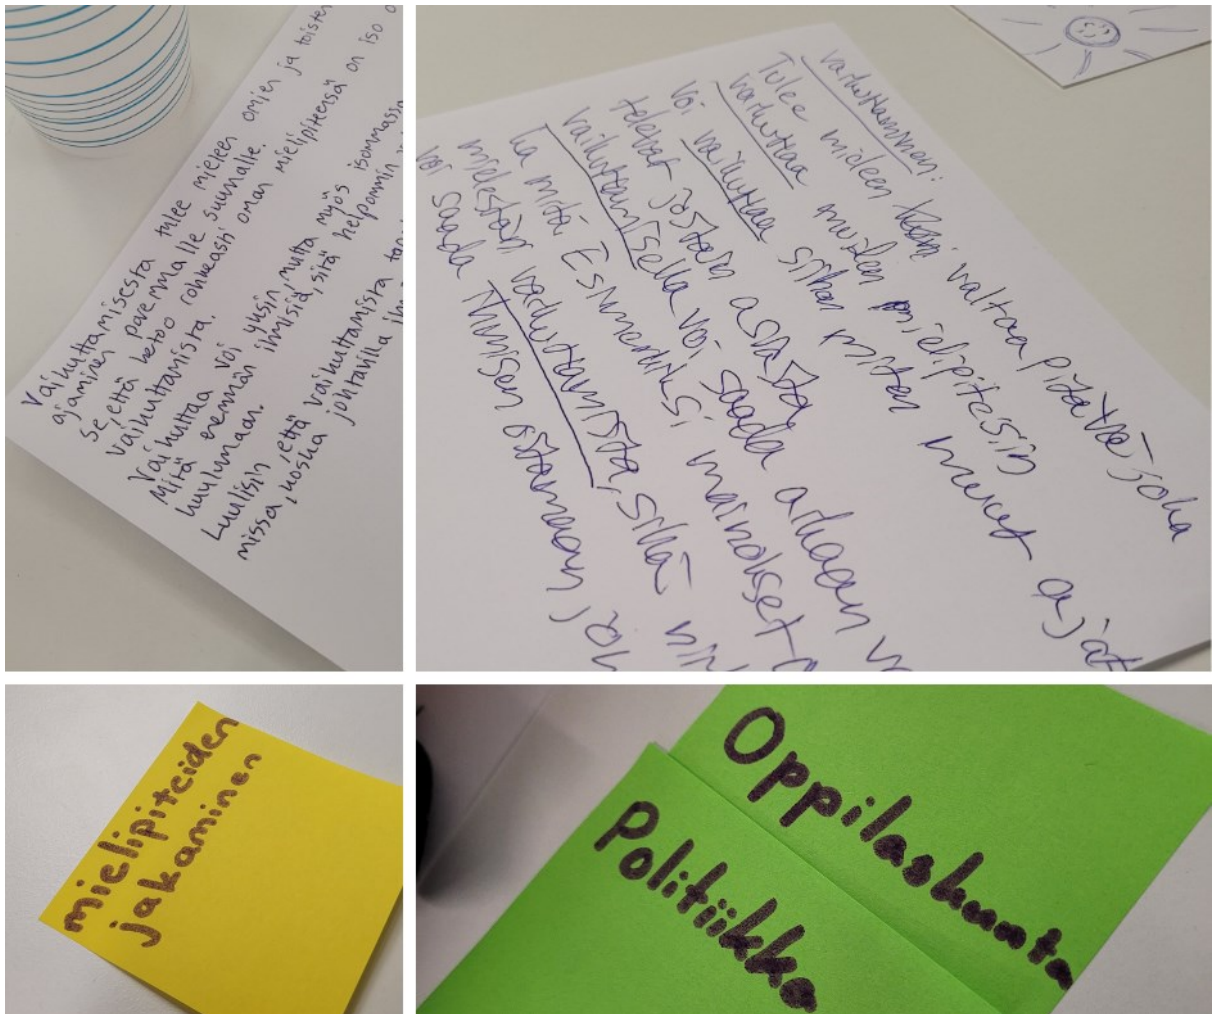 Vaikuttamisesta tulee mieleen omien ja toisten
ajaminen paremmalle suunnalle.
Se, että kertoo rohkeasti oman mielipiteensä on iso o
vaikuttamista.
Vaikuttaa voi yksin, mutta myös isommassa
Mitä enemmän ihmisiä, sitä helpommin
kuulumaan.
Luulisin, että vaikuttamista
missä, koska johtavilla
vaikuttaminen:
Tulee mieleen valtaapitävä, joka
vaikuttaa muiden mielipiteisiin
voi vaikuttaa siihen miten muut ajat
tekevät jostain asiasta
vaikuttamisella voi saada aikaan
ta mitä Esimerkiksi mainokset
mielestäni vaikuttamista, sillä niin
voi saada ihmisen ostamaan, jo
mielipiteiden
jakaminen
Oppilaskunta
Politiikka